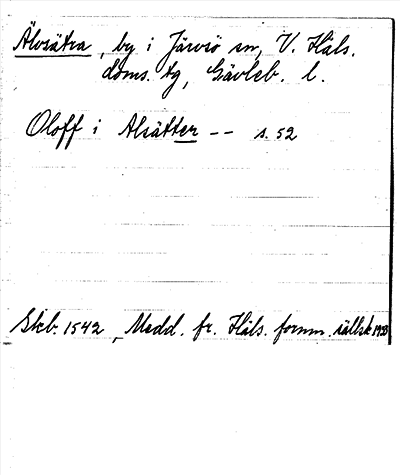 Älvsätra, by i Järvsö sn, V. Häls.
doms. tg, Gävleb. l.
Oloff i Alsätter -- s. 52
Skb. 1542, Medd. fr. Häls. fornm. sällsk